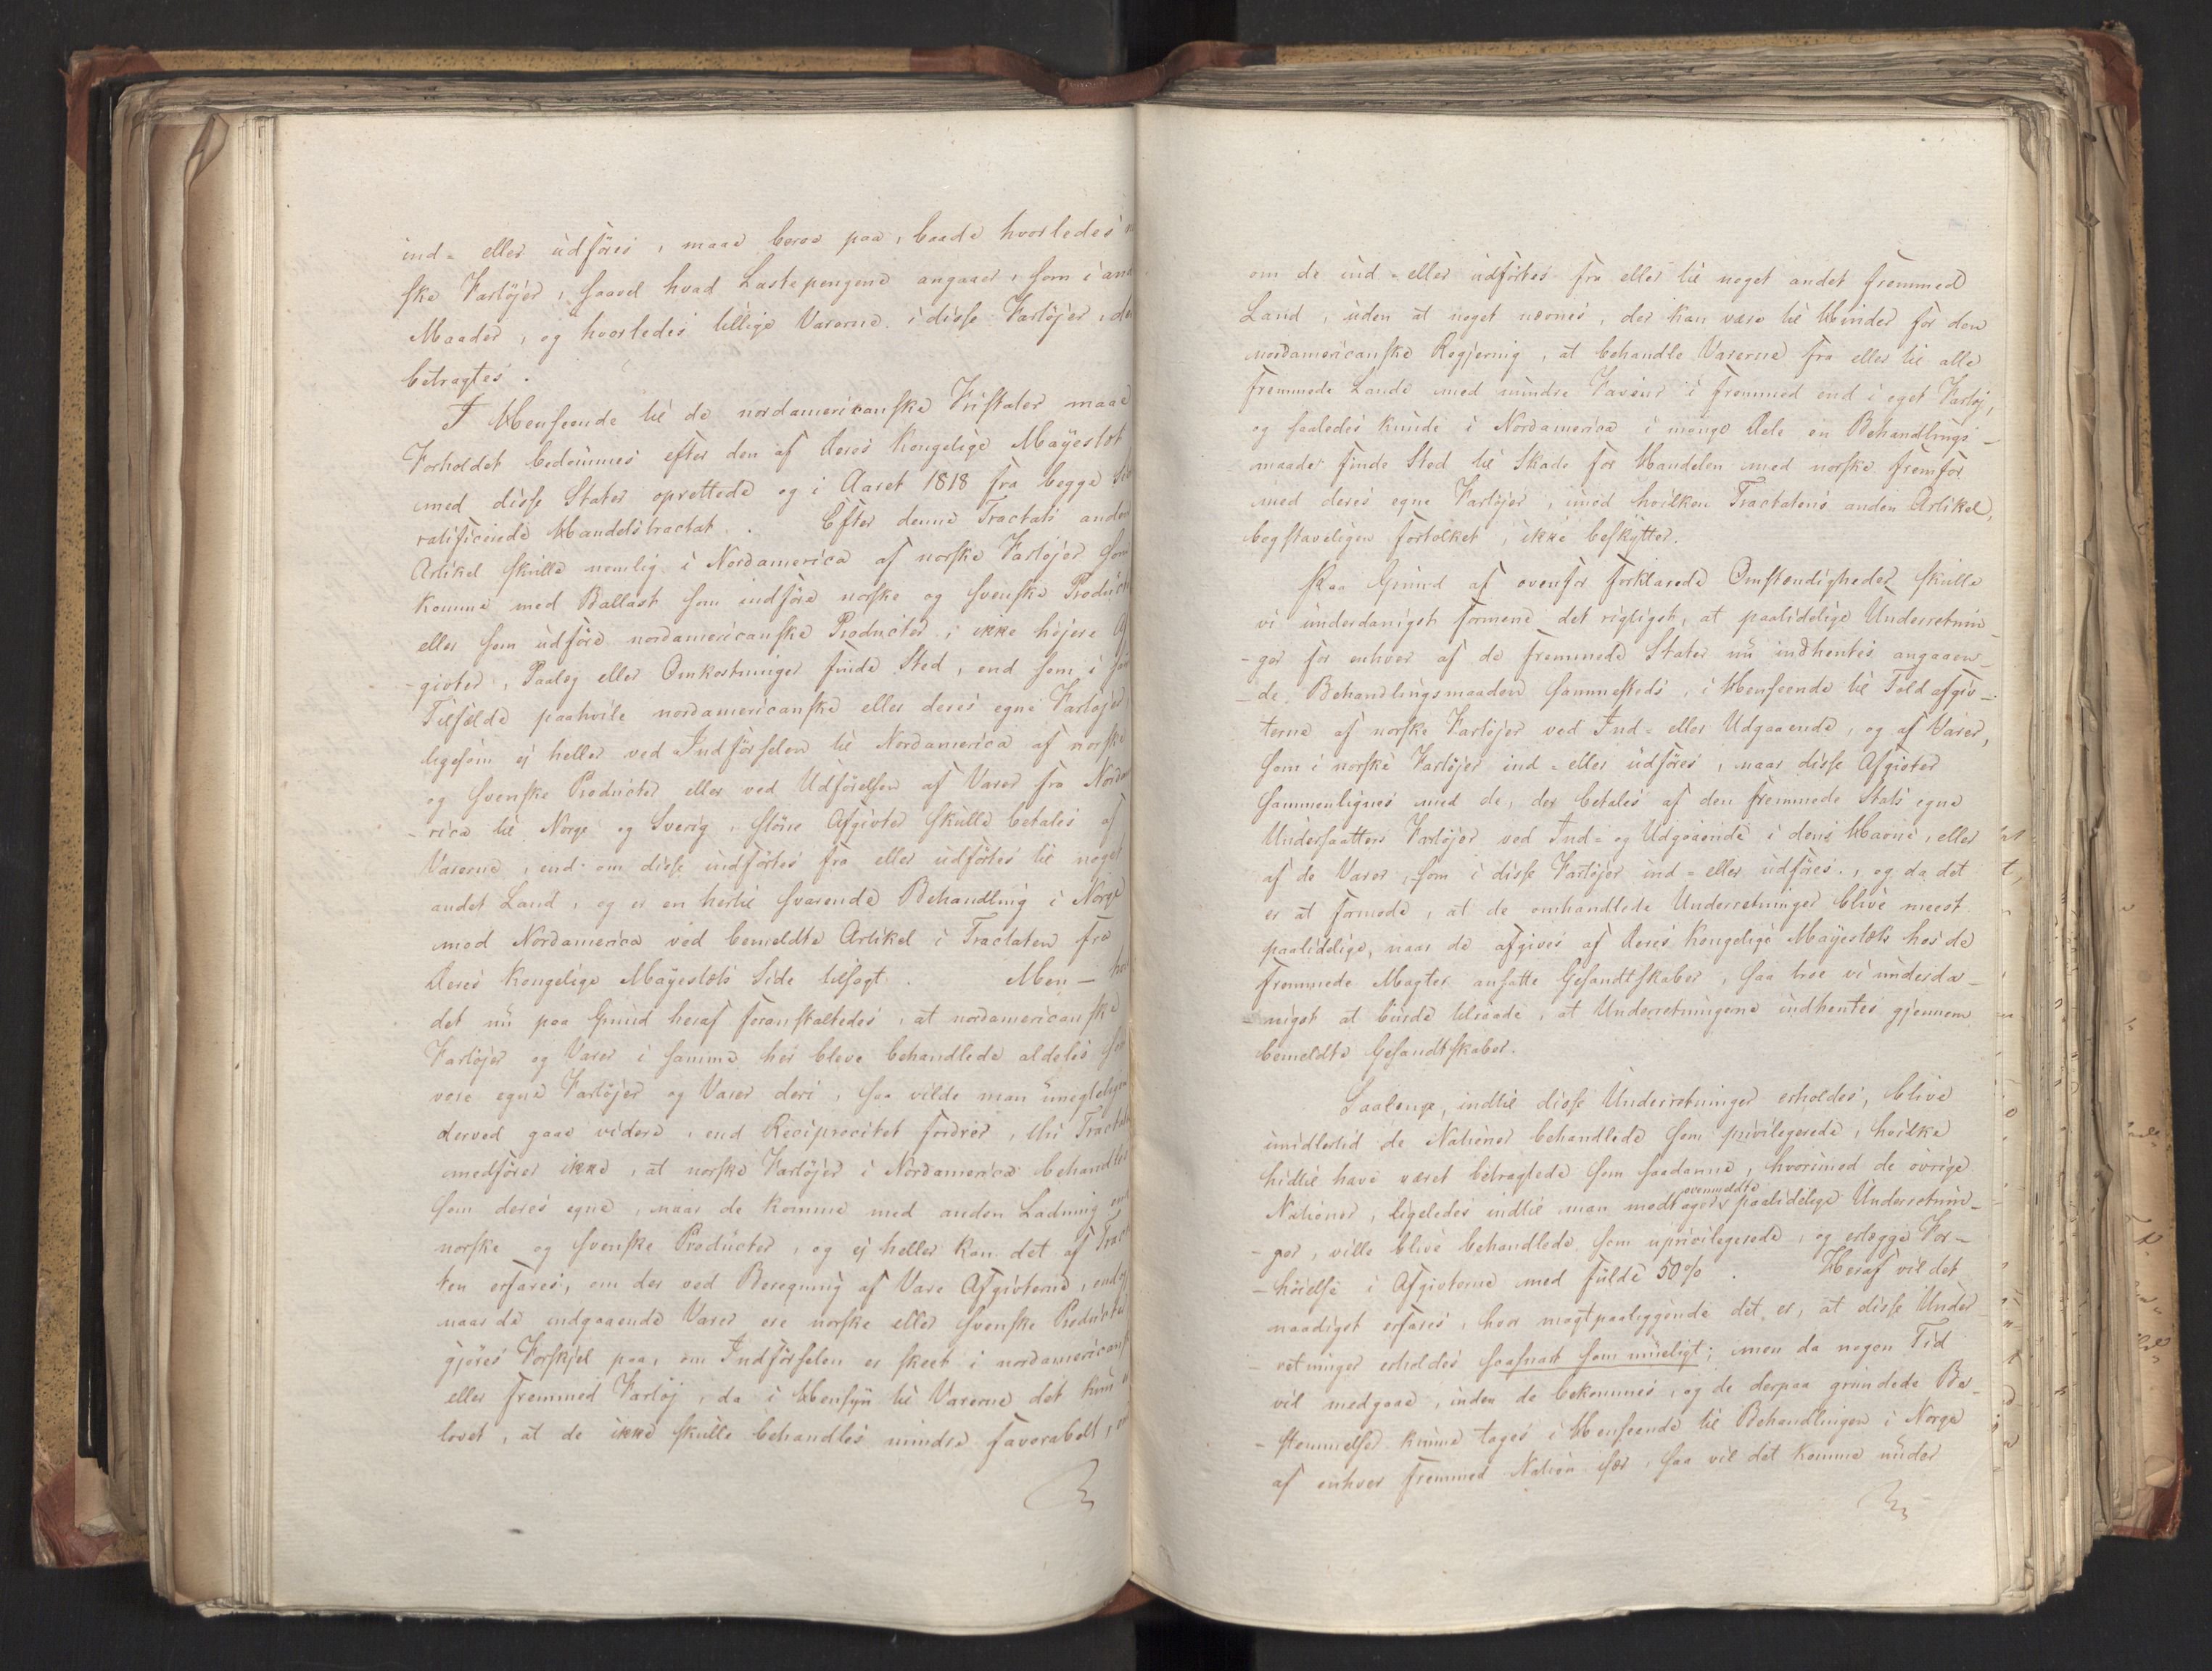 ind- eller udføres, maae beroe paa, baade hvorledes
ske Fartøjer, saavel hvad Lastepengene angaaer, som i
Maader, og hvorledes tillige Varerne i disse Fartøjer,
betragtes.
I Henseende til de nordamericanske Fristater maae
Forholdet bedømmes efter den af Deres Kongelige Mayestæt
med disse Stater oprettede og i Aaret 1818 fra begge
ratificerede Handelstractat. Efter denne Tractats anden
Artikel skulle nemlig i Nordamerica af norske Fartøjer som
komme med Ballast som indføre norske og svenske Producter
eller som udføre nordamericanske Producter, ikke højere Af
-givter, Paalæg eller Omkostninger finde Sted, end som i
Tilfælde paahvile nordamericanske eller deres egne Fartøjer
ligesom ej heller ved Indførselen til Nordamerica af norske
og svenske Producter eller ved Udførelsen af Varer fra Norda
-rica til Norge og Sverig, større Afgivter skulle betales af
Varerne, end om disse indførtes fra eller udførtes til noget
andet Land, og er en hertil svarende Behandling i Norge
mod Nordamerica ved bemeldte Artikel i Tractaten fra
Deres Kongelige Mayestæts Side tilsagt. Men -
det nu paa Grund heraf foranstaltedes, at nordamericanske
Fartøjer og Varer i samme her bleve behandlede aldeles som
vore egne Fartøjer og Varer deri, saa vilde man unegteligen
derved gaae videre, end Reciprocitet fordrer, thi Tractaten
medfører ikke, at norske Fartøjer i Nordamerica behandles
som deres egne, naar de komme med anden Ladning end
norske og svenske Producter, og ej heller kan det af Trac
ten erfares, om der ved Beregning af Vare Afgivterne, endog
naar de indgaaende Varer ere norske eller svenske Producter
gjøres Forskjel paa, om Indførselen er skeet i nordamericansk
eller fremmed Fartøj, da i Hensyn til Varerne det kun er
lovet, at de ikke skulle behandles mindre favorabelt, end
om de ind- eller udførtes fra eller til noget andet fremmed
Land, uden at noget nævnes, der kan være til Hinder for den
nordamericanske Regjering, at behandle Varerne fra eller til alle
fremmede Lande med mindre Faveur i fremmed end i eget Fartøj,
og saaledes kunde i Nordamerica i mange Dele en Behandlings-
maade finde Sted til Skade for Handelen med norske fremfor
med deres egne Fartøjer, imod hvilken Tractatens anden Artikel,
bogstaveligen fortolket, ikke beskytter.
Paa Grund af ovenfor forklarede Omstændigheder skulle
vi underdanigst formene det rigtigst, at paalidelige Underretnin-
-ger for enhver af de fremmede Stater nu indhentes angaaen-
-de Behandlingsmaaden sammesteds, i Henseende til Toldafgiv-
terne af norske Fartøjer ved Ind- eller Udgaaende, og af Varer,
som i norske Fartøjer ind- eller udføres, naar disse Afgivter
sammenlignes med de, der betales af den fremmede Stats egne
Undersaatters Fartøjer ved Ind- og Udgaaende i dens Havne, eller
af de Varer, som i disse Fartøjer ind- eller udføres, og da det
er at formode, at de omhandlede Underretninger blive meest
paalidelige, naar de afgives af Deres Kongelige Mayestæts hos de
fremmede Magter ansatte Gesandtskaber, saa troe vi underda-
-nigst at burde tilraade, at Underretningerne indhentes gjennem
bemeldte Gesandtskaber.
Saalenge, indtil disse Underretninger erholdes, blive
imidlertid de Nationer behandlede som privilegerede, hvilke
hidtil have været betragtede som saadanne, hvorimod de øvrige
Nationer, ligeledes indtil man modtager ovenmeldte paalidelige Underretnin-
-ger, ville blive behandlede som uprivilegerede, og erlægge For-
-høielse i Afgivterne med fulde 50%. Heraf vil det
naadigst erfares, hvor magtpaaliggende det er, at disse Under
-retninger erholdes saasnart som mueligt; men da nogen Tid
vil medgaae, inden de bekommes, og de derpaa grundede Be-
-stemmelser kunne tages i Henseende til Behandlingen i Norge
af enhver fremmed Nation især, saa vil det komme under